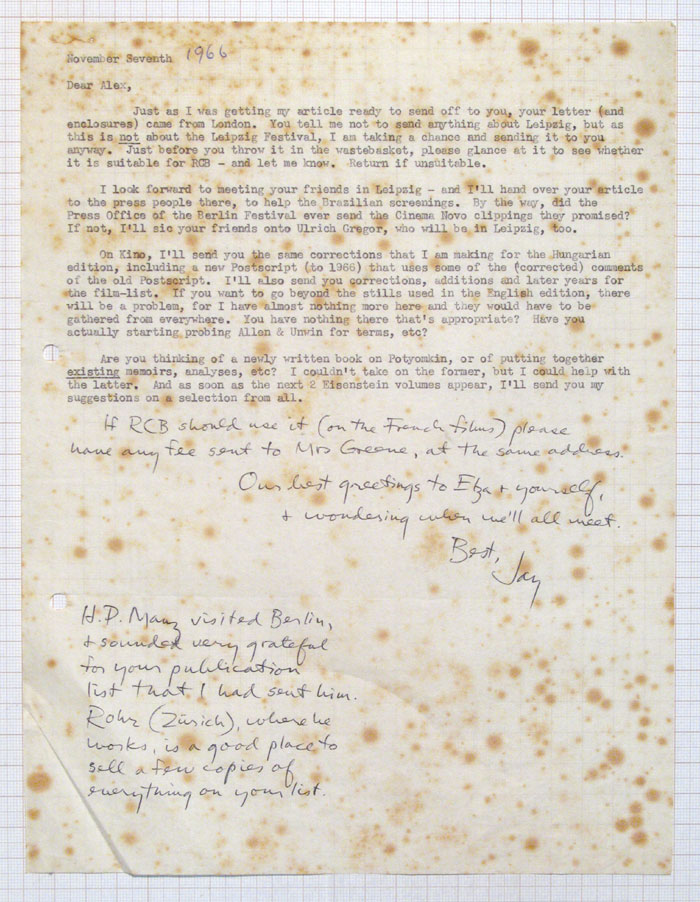 November Seventh 1966
Dear Alex,
Just as I was getting my article ready to send off to you, your letter (and
enclosures) came from London. You tell me not to send anything about Leipzig, but as
this is not about the Leipzig Festival, I am taking a chance and sending it to you
anyway. Just before you throw it in the wastebasket, please glance at it to see whether
it is suitable for RCB - and let me know. Return if unsuitable.
I look forward to meeting your friends in Leipzig - and I'll hand over your article
to the press people there, to help the Brazilian screenings. By the way, did the
Press Office of the Berlin Festival ever send the Cinema Novo clippings they promised?
If not, I'll sic your friends onto Ulrich Gregor, who will be in Leipzig, too.
On Kino, I'll send you the same corrections that I am making for the Hungarian
edition, including a new Postscript (to 1966) that uses some of the (corrected) comments
of the old Postscript. I'll also send you corrections, additions and later years for
the film-list. If you want to go beyond the stills used in the English edition, there
will be a problem, for I have almost nothing more here and they would have to be
gathered from everywhere. You have nothing there that's appropriate? Have you
actually starting probing Allen & Unwin for terms, etc?
Are you thinking of a newly written book on Potyomkin, or of putting together
existing memoirs, analyses, etc? I couldn't take on the former, but I could help with
the latter. And as soon as the next 2 Eisenstein volumes appear, I'll send you my
suggestions on a selection from all.
If RCB should use it (on the French films) please
have any fee sent to Mrs Greene, at the same address.
Our best greetings to Elza + yourself,
+ wondering when we'll all meet.
Best,
Jay
H.P. Manz visited Berlin,
+ sounded very grateful
for your publication
list that I had sent him.
Rohr (Zürich), where he
works, is a good place to
sell a few copies of
everything on your list.